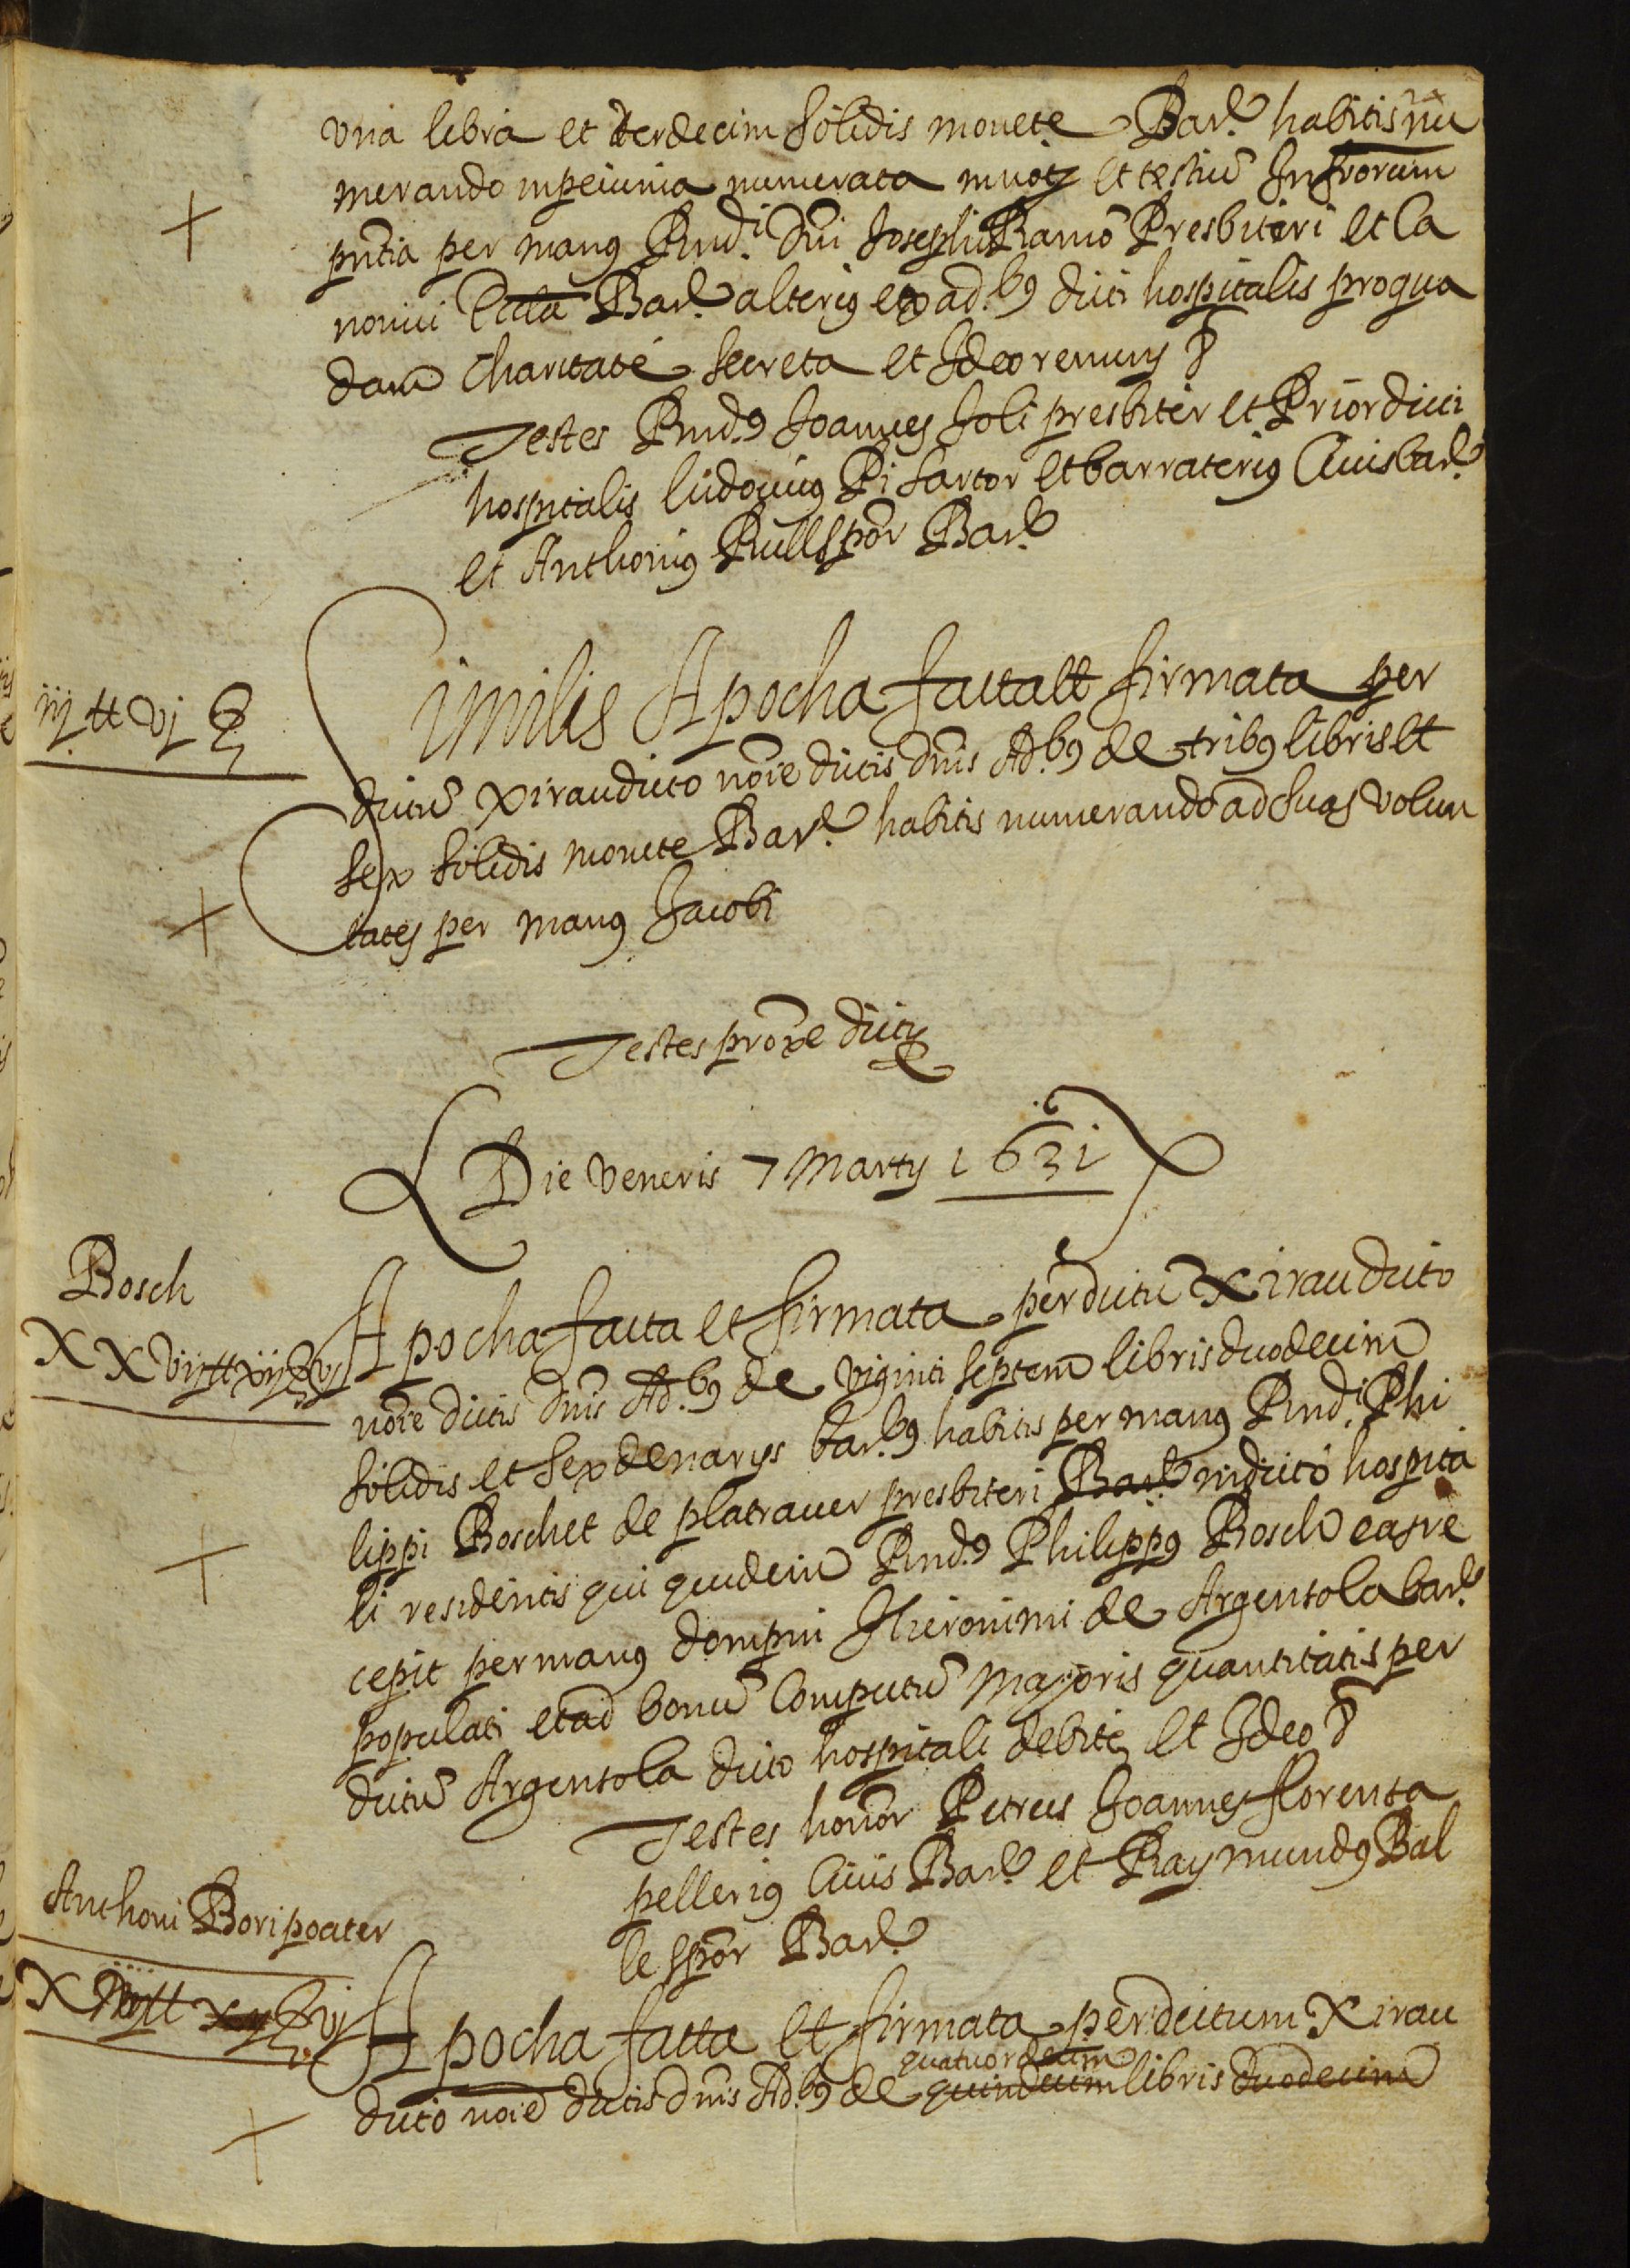 vna libra et terdecim solidis monete Barᵉ habitis nu
merando in peiunia numerata mnotʒ et testiū Infrorum
pn̄tia per manꝯ Rndⁱ Dn̄i Josephi Ramō Presbiteri et Ca
nonici Eccłæ Barᵉ alteriꝯ ex ad.ᵇꝯ dicti hospitalis pro qua
dam Charitate secreta et Ideo renuns &
Testes Rndꝯ Joannes Soli presbiter et Prior dicti
hospitalis ludouicꝯ Pi sartor et barrateriꝯ Ciuis barᵉ
et Anthoniꝯ Rull sp̄or Barᵉ
iij tt vj ẞ
Similis Apocha facta et firmata per
dictū Xirau dicto nōie dictis dn̄is Ad.ᵇꝯ de tribꝯ libris et
sex solidis monete Barᵉ habitis numerando ad suas volun
tates per manꝯ Jacobi
Testes prox̄e dicti
Die Veneris 7 Martij 1631
Bosch
XXvij tt xij ẞ vj
Apocha facta et firmata per dictū Xirau dicto
nōie dictis dn̄is Ad.ᵇꝯ de viginti septem libris duodecim
solidis et sex denarijs barᵇꝯ habitis per manꝯ Rndⁱ Phi
lippi Bosch et de platrauer presbiteri Barᵉ in dicto hospita
li residentis qui quidem Rndꝯ Philippꝯ Bosch eas re
cepit per manꝯ dompni Hieronimi de Argensola barᵉ
populati et ad bonū Computū Majoris quantitatis per
dictū Argensola dicto hospitali debite et Ideo &
Testes honōr Petrus Joannes florensa
pelleriꝯ Ciuis Barᵉ et Raymundꝯ Bal
le sp̄or Barᵉ
Anthoni Bori poater
X tt ẞ vj
Apocha facta et firmata per dictum Xirau
quatuordecim
dicto nōie dictis dn̄is Ad.ᵇꝯ de quindecim libris duodecim